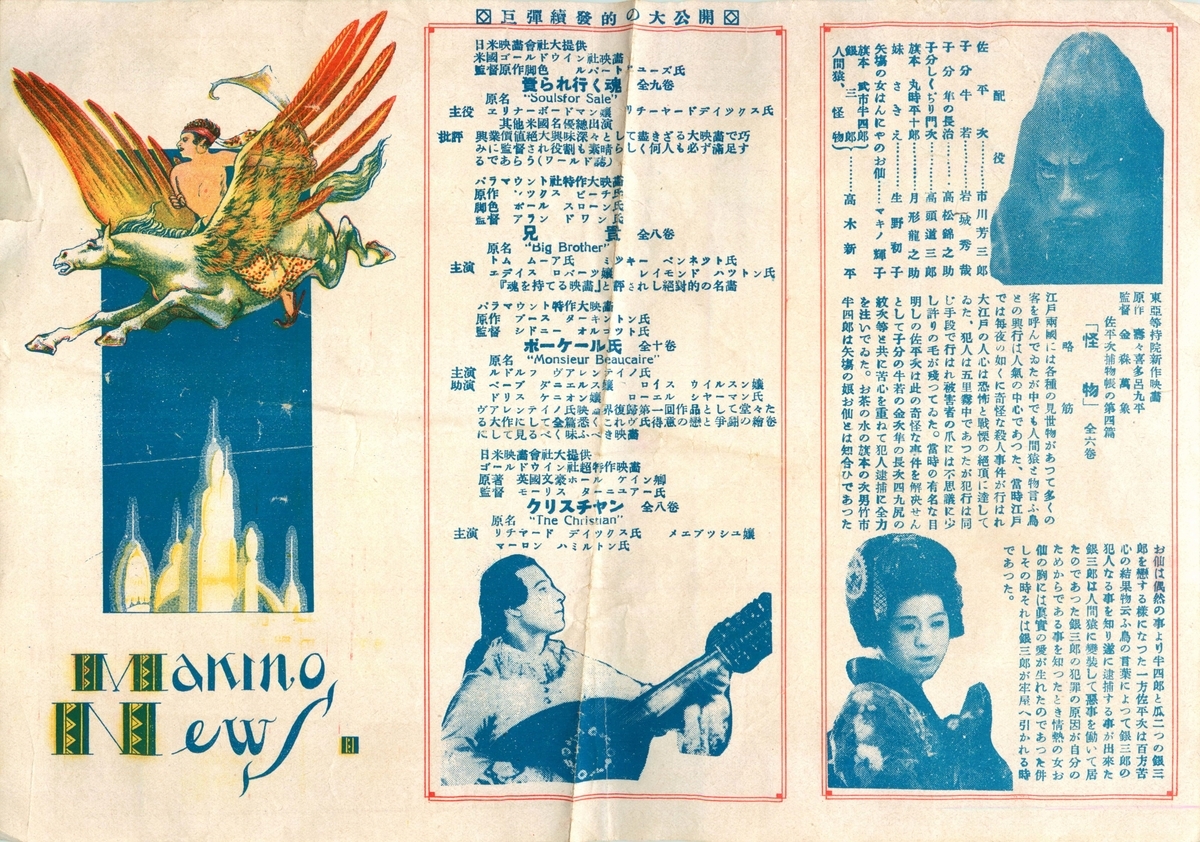 Makino
News.
巨彈續發的の大公開
日米映畵會社大提供
米國ゴールドウイン社映畵
監督原作脚色 ルパート ユーズ氏
賣られ行く魂 全九卷
原名 "Soulsfor Sale"
主役 エリナーボードマン孃 リチーヤードデイックス氏
其他米國名優總出演
批評 興業價値絕大興味深々として盡きざる大映畵で巧
みに監督され役割も素晴らしく何人も必ず滿足す
るであらう(ワールド誌)
パラマウント社特作大映畵
原作 ックス ビーチ氏
脚色 ポール スローン氏
監督 アラン ドワン氏
兄貴 全八卷
原名 "Big Brother"
トム ムーア氏 ミッキー ベンネット氏
主演 エデイス ロバーツ孃 レイモンド ハットン氏
『魂を持てる映畵』と評されし絕對的の名畵
パラマウント特作大映畵
原作 ブース ターキントン氏
監督 シドニー オルコット氏
ボーケール氏 全十卷
原名 "Monsieur Beaucaire"
主演 ルドルフ ヴアレンテイノ氏
助演 ベーブ ダニエルス孃 ロイス ウイルスン孃
ドリス ケニオン孃 ローエル シヤーマン氏
ヴアレンテイノ氏映 界復歸第一回作品として堂々た
る大作にして全篇悉くこれヴ氏得意の戀と爭鬪の繪卷
にして見るべく味ふべき映畵
日米映畵會社大提供
ゴールドウイン社超特作映畵
原著 英國文豪ホール ケイン卿
監督 モーリス ターニユアー氏
クリスチャン 全八卷
原名 "The Christian"
主演 リチヤード デイックス氏 メエブッシユ孃
マーロン ハミルトン氏
配役
佐平次……市川芳三郎
子分牛若……岩城秀哉
子分隼の長治……高松錦之助
子分しくじり門次……高頭道三郎
旗本 丸時平十郎……月形龍之助
妹さきえ……生野初子
矢塲の女はんにやのお仙……マキノ輝子
旗本 武市半四郎
銀三郎
人間猿、怪物……高木新平
東亞等持院新作映畵
原作 壽々喜多呂九平
監督 金森萬象
佐平次捕物帳の第四篇
「怪物」 全六卷
略筋
江戸兩國には各種の見世物があつて多くの
客を呼んでゐたが中でも人間猿と物言ふ鳥
との興行は人氣の中心であつた、當時江戸
では每夜の如くに奇怪な殺人事件が行はれ
大江戸の人心は恐怖と戰慄の絕頂に達して
ゐた、犯人は五里霧中であつたが犯行は同
じ手段で行はれ被害者の爪には不思議に少
し許りの毛が殘つてゐた。當時の有名な目
明しの佐平次は此の奇怪な事件を解決せん
として子分の牛若の金次隼の長次四九尻の
紋次等と共に苦心を重ねて犯人逮捕に全力
を注いでゐた。お茶の水の旗本の次男竹市
半四郎は矢塲の娘お仙とは知合ひであつた
お仙は偶然の事より半四郎と瓜二つの銀三
郎を戀する樣になつた一方佐平次は百方苦
心の結果物云ふ鳥の言葉によつて銀三郎の
犯人なる事を知り遂に逮捕する事が出來た
銀三郎は人間猿に變裝して惡事を働いて居
たのであつた銀三郎の犯罪の原因が自分の
ためからである事を知つたとき情熱の女お
仙の胸には眞實の愛が生れたのであつた併
しその時それは銀三郎が牢屋へ引かれる時
であつた。